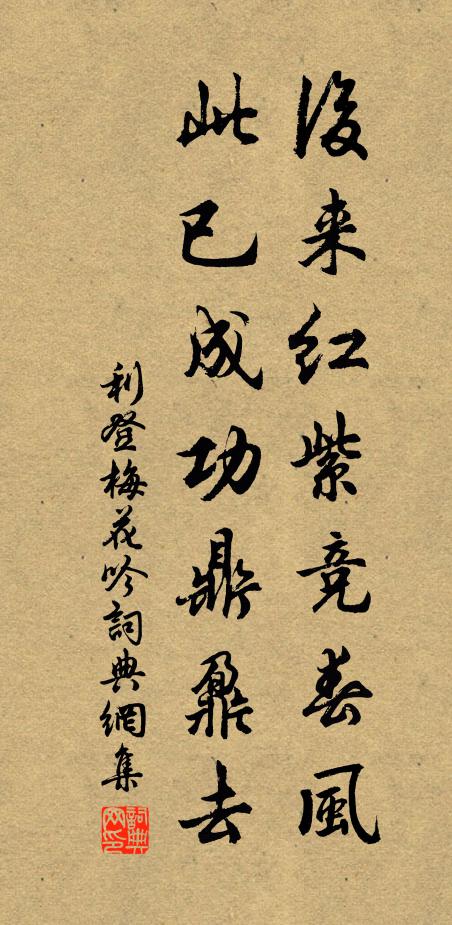 後来红紫竞春風
此已成功鼎鼐去
利登梅花吟詞典網集
詞典网印